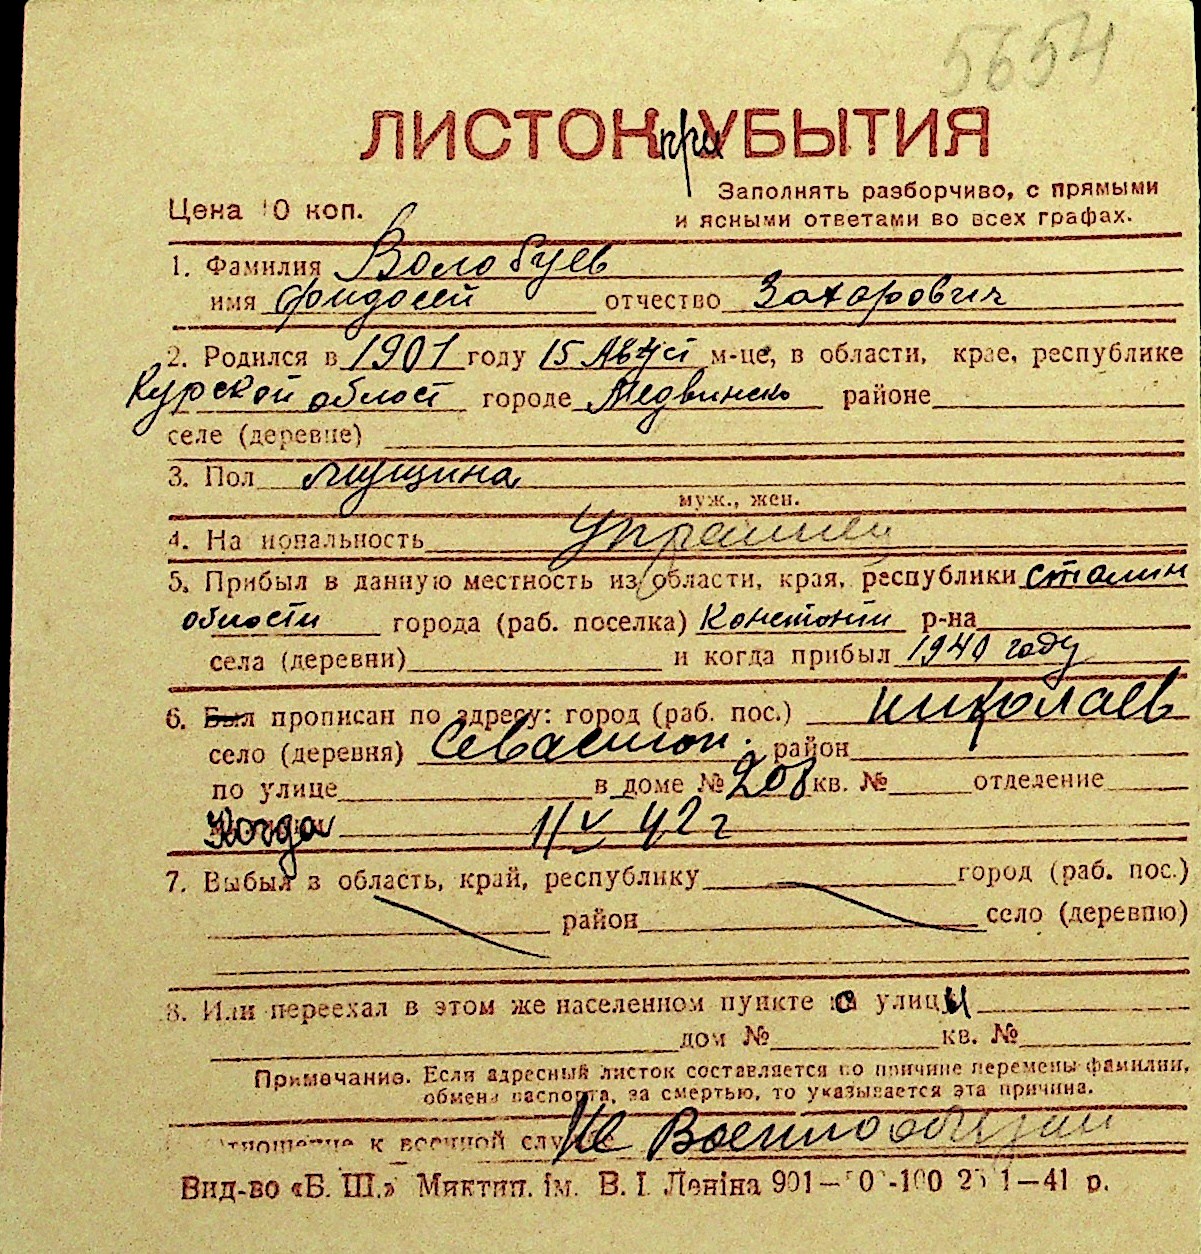 5654
ЛИСТОК при УБЫТИЯ
Цена 10 коп.
Заполнять разборчиво, с прямыми
и ясными ответами во всех графах.
1. Фамилия Волобуев
имя Фидосей отчество Захарович
2. Родился в 1901 году 15 Август м-це, в области, крае, республике
Курской област городе Медвинско районе
селе (деревне)
3. Пол мущина
муж., жен.
4. Национальность Украинец
5. Прибыл в данную местность из области, края, республики Сталин
области города (раб. поселка) Константи р-на
села (деревни) и когда прибыл 1940 году
6. Был прописан по адресу: город (раб. пос.) Николаев
село (деревня) Севастоп. район
по улице в доме № 208 кв. № отделение
Когда 1/V 42 г
7. Выбыл в область, край, республику город (раб. пос.)
район село (деревню)
8. Или переехал в этом же населенном пункте с улицы
дом № кв. №
Примечание. Если адресный листок составляется по причине перемены фамилии,
обмена паспорта, за смертью, то указывается эта причина.
Отношение к военной службе Не Военнообязан
Вид-во «Б. Ш.» Миктип. ім. В. І. Леніна 901— -100 25 1—41 р.